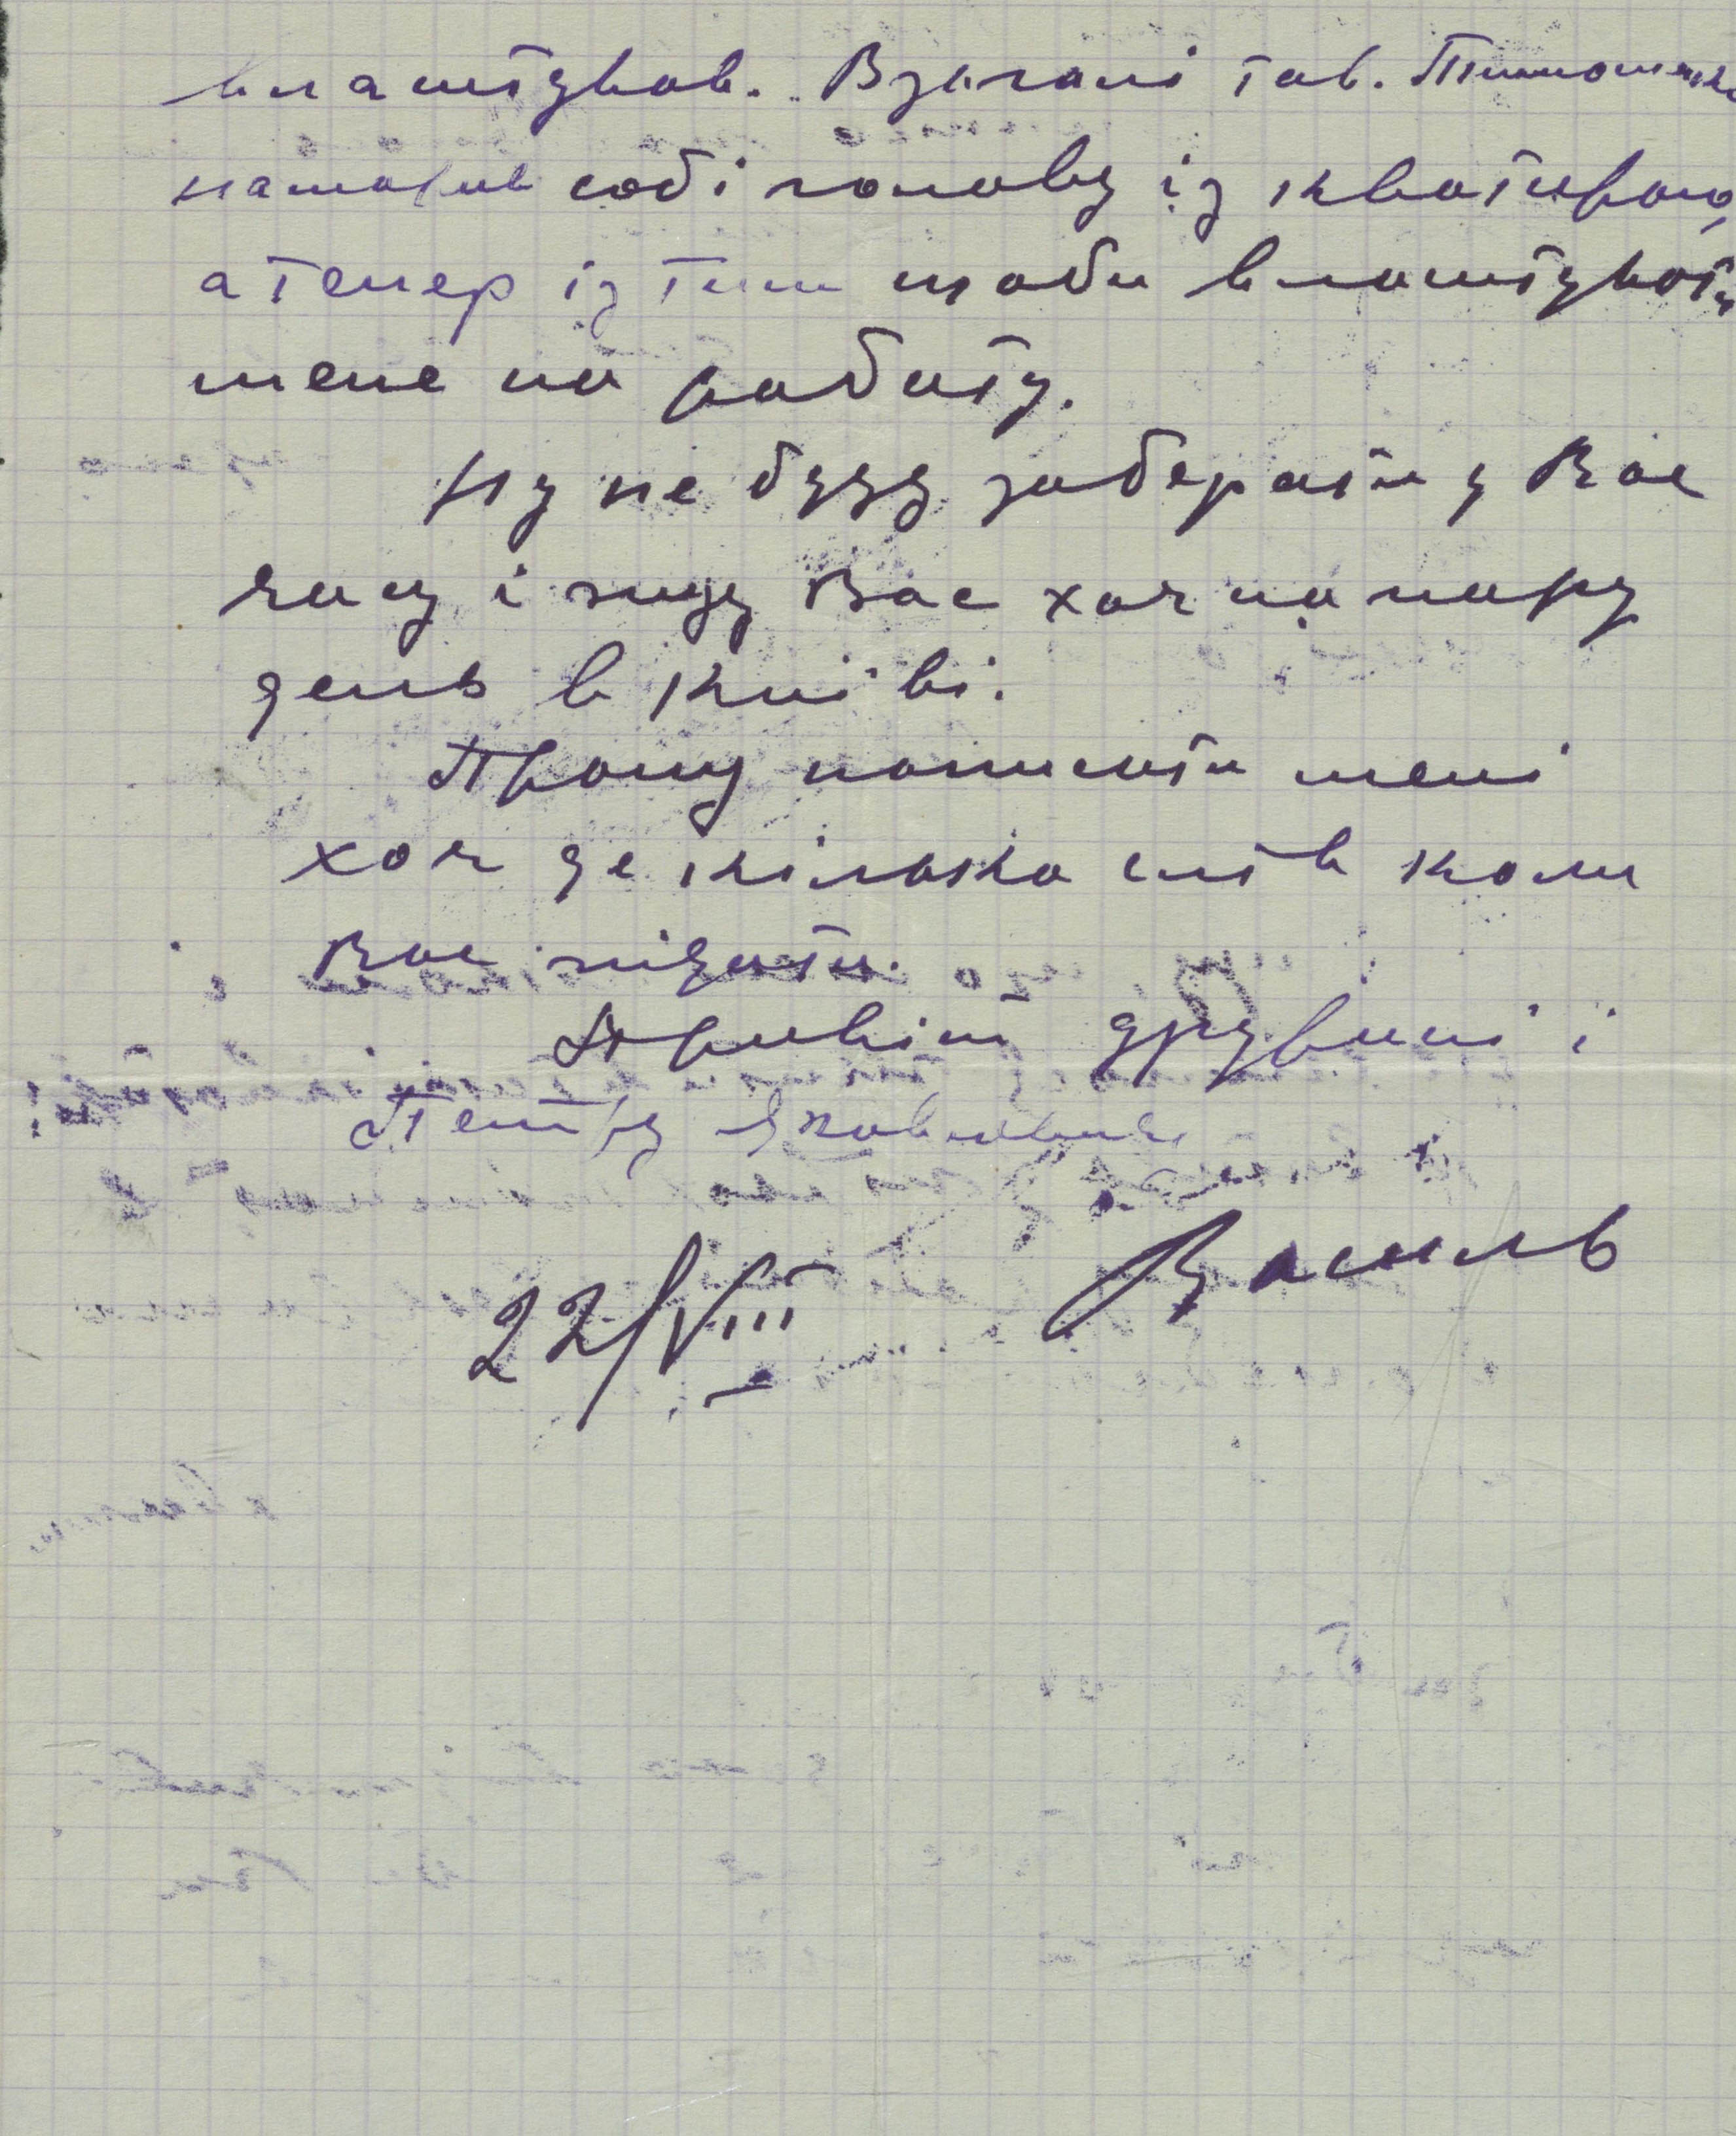 влаштував. Взагалі тов. Тимошенко
наморив собі голову із кватирою,
а тепер із тим щоби влаштувати
мене на работу.
Ну не буду заберати у Вас
часу і жду Вас хоч на пару
день в Київі.
Прошу написати мені
хоч де кілька слів коли
Вас ждати.
Привіт дружині і
Петру Яковлевичу
22/VIII Василь